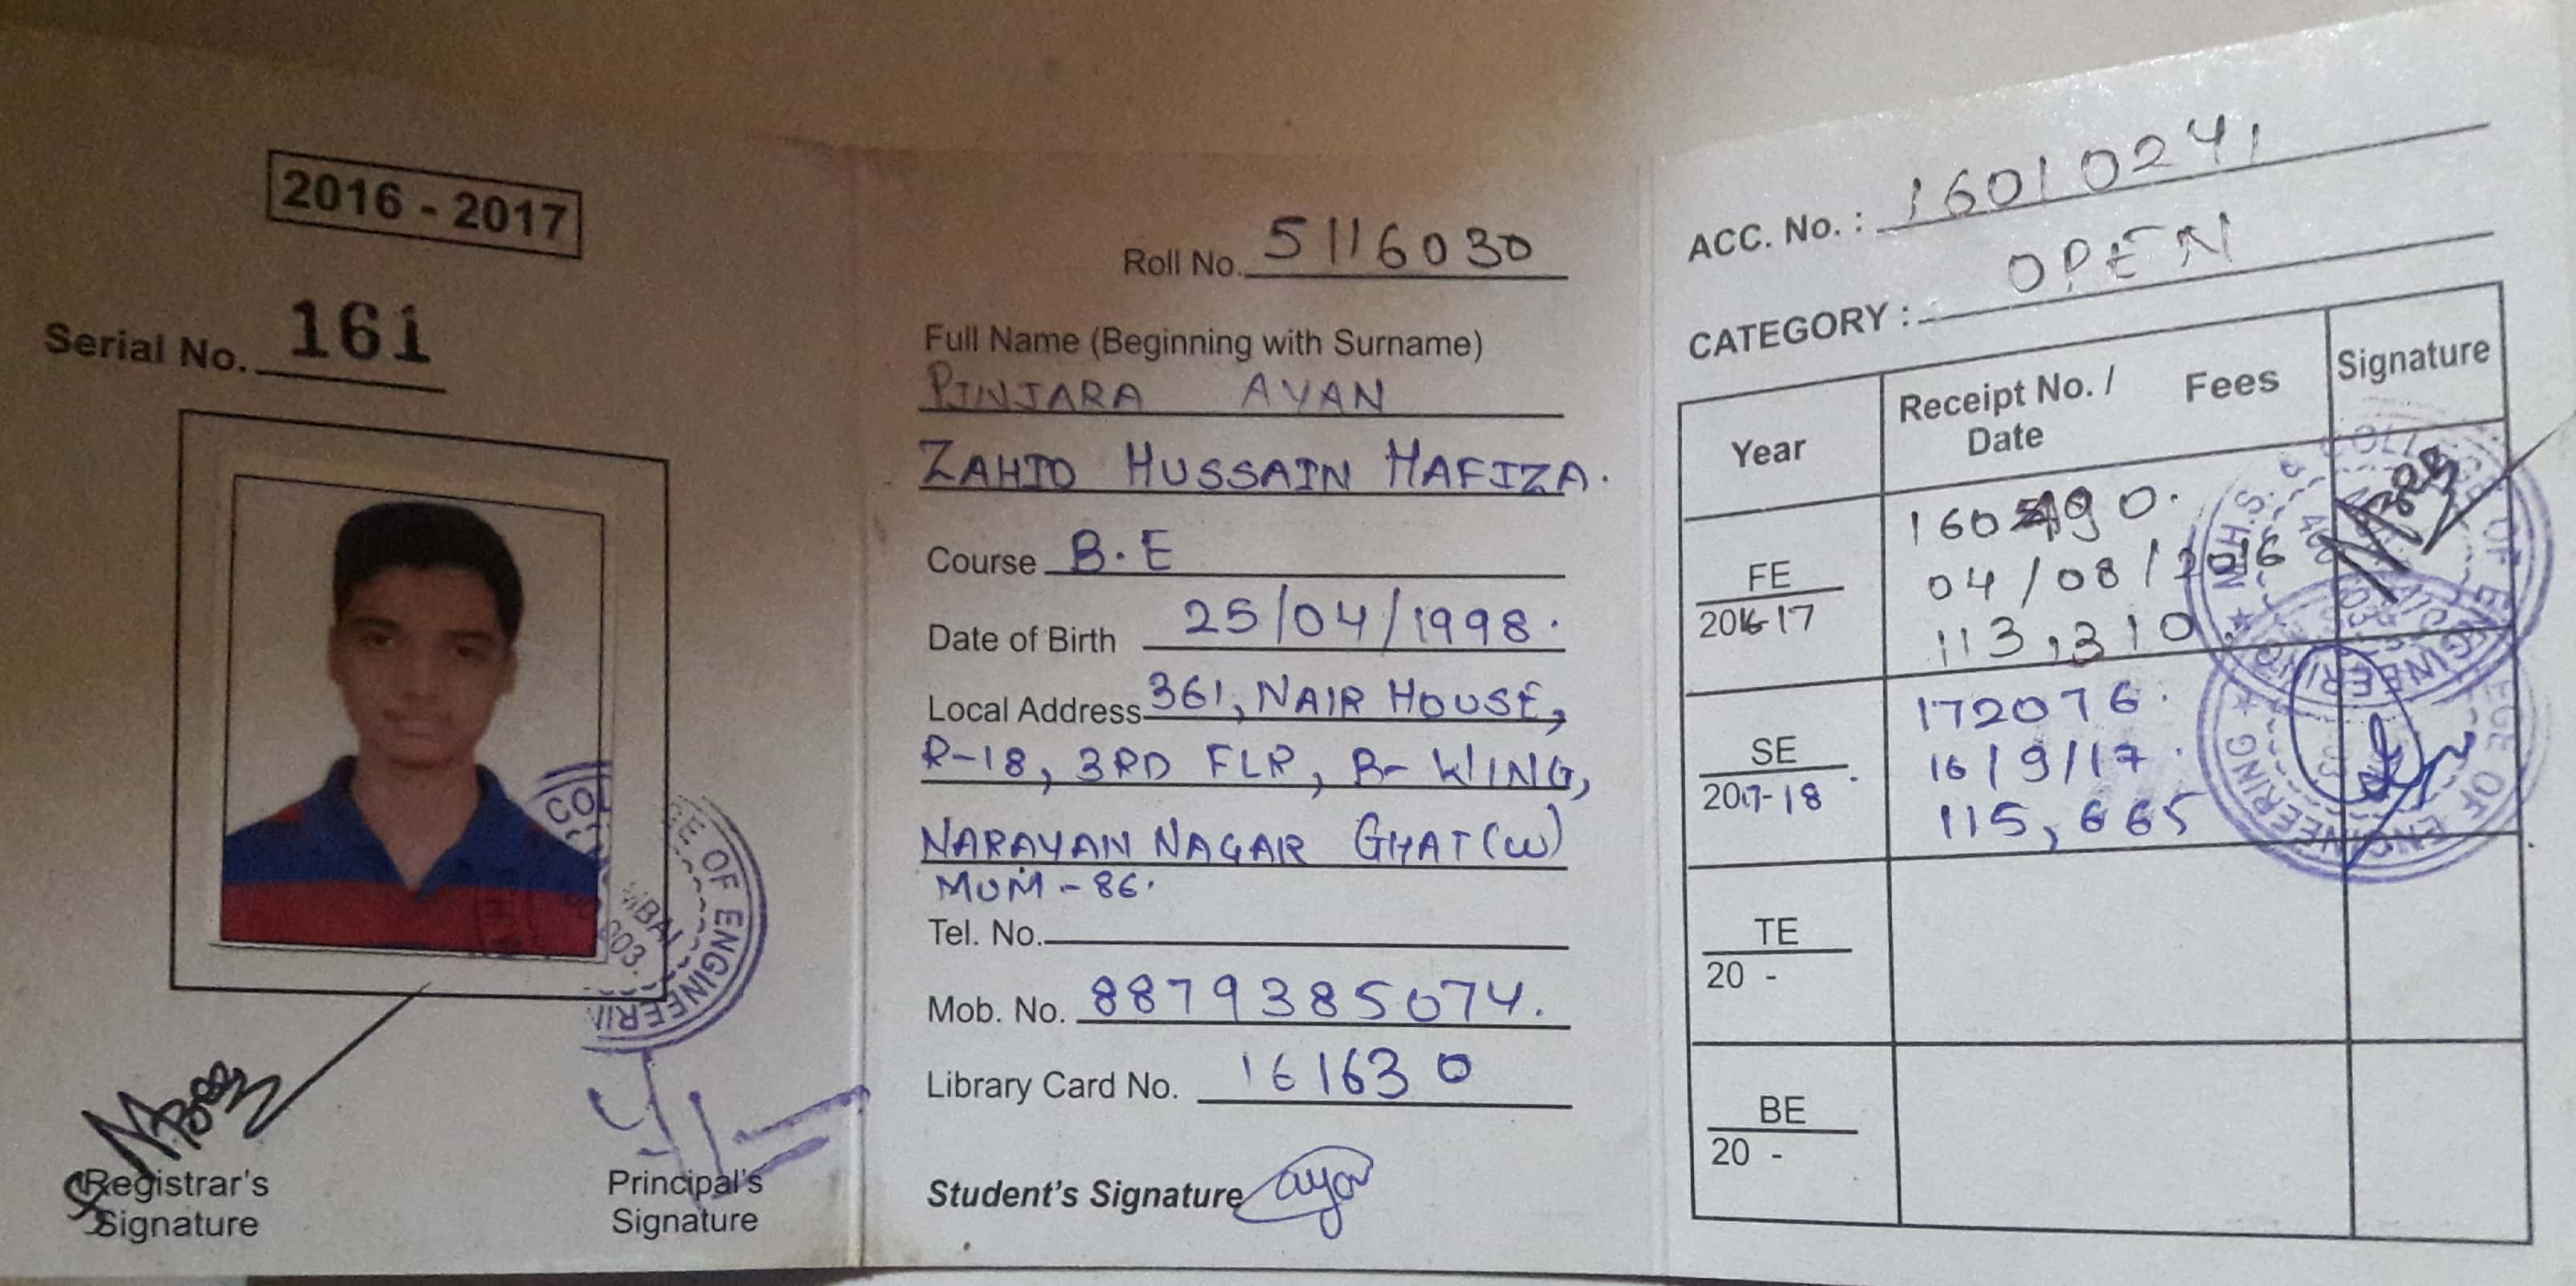 2016 - 2017
Serial No. 161
COL
GE OF ENGINEERIN
MBAI
603.
Registrar's
Signature
Principal's
Signature
Roll No. 5116030
Full Name (Beginning with Surname)
PINJARA AYAN
ZAHID HUSSAIN HAFIZA.
Course B.E
Date of Birth 25/04/1998.
Local Address 361, NAIR HOUSE,
R-18, 3RD FLR, B- WING,
NARAYAN NAGAR GHAT (W)
MUM - 86.
Tel. No.
Mob. No. 8879385074.
Library Card No. 161630
Student's Signature ayan
ACC. No. : 16010241
CATEGORY : OPEN
Year Receipt No. / Date Fees Signature
FE
2016-17
04/08/2016
113,310.
SE
2017-18
172076.
16/9/17
115,665
TE
20 -
BE
20 -